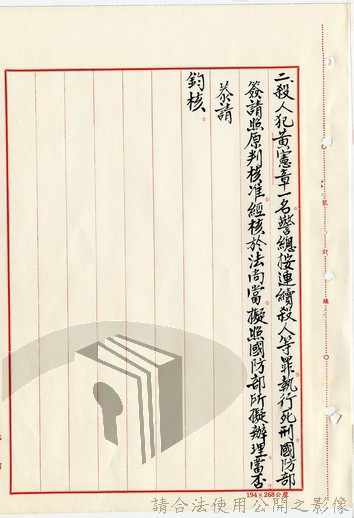 二、殺人犯黃憲章一名警總按連續殺人等罪執行死刑國防部
簽請照原判核准。經核於法尚當擬照國防部所擬辦理當否
恭請
鈞核。
裝訂線
194×268公厘
請合法使用公開之影像